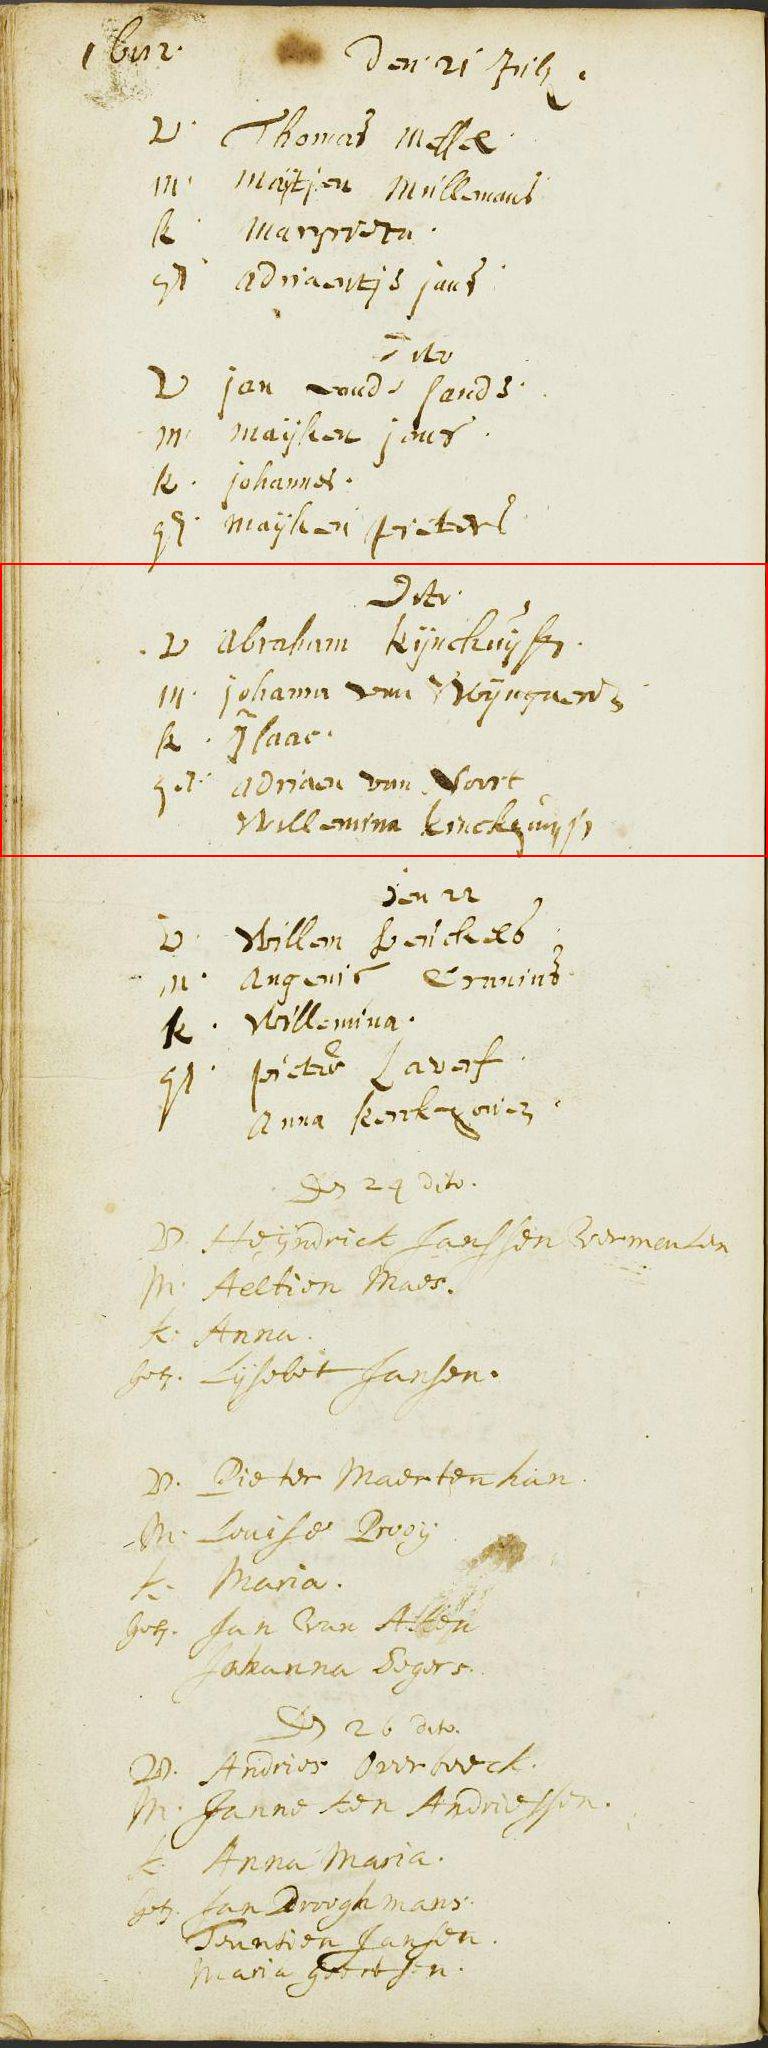 Den 21 July
V. Thomas Messe
m. maijtjen Mullemans
k. Margrieta.
gt. adriaentjs jans
Dito
V jan oude sands.
m. maijken jans.
k. johannes.
gt. maijken pieters
Dito.
V abraham kijnckuijse.
m. johanna van Wijngaerde
k. ijsaac.
get. adriaen van Noort
Willemina kinckuijse
den 22
V. Willem
m. angenis
k. Willemina.
gt. pieter Laverf
anna
Den 24 dito.
V. Heijndrick Janssen Vermeulen
M. Aeltien Maes.
k. Anna.
get. Lijsebet Jansen.
V. Pieter Maertenhan.
M. Louise Prooy
k. Maria.
get. Jan Van Alten
Johanna Segers.
Den 26 dito.
V. Andries Overbeeck.
M. Janneken Andriessen.
k. Anna Maria.
get. Jan Drooghmans.
Teuntien Jansen.
Maria geertsen.